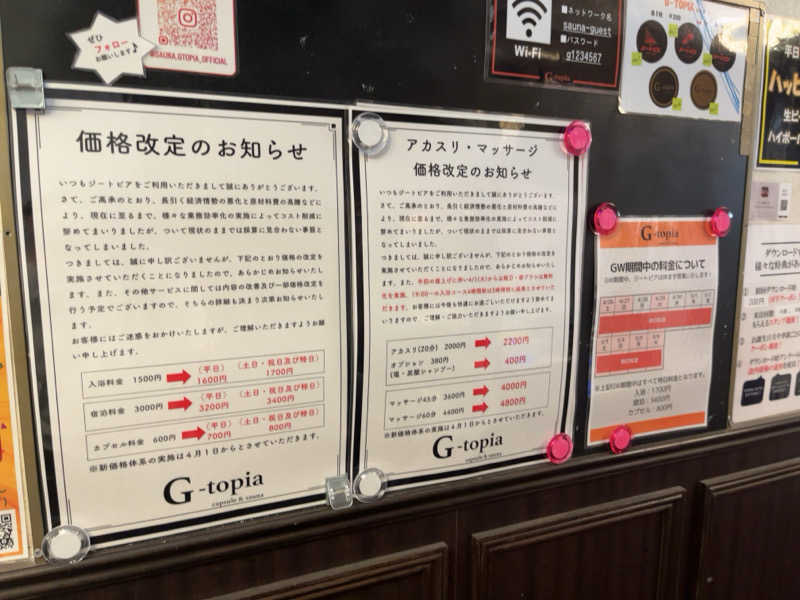 ぜひ
フォロー
お願いします！
@SAUNA.GTOPIA_OFFICIAL
Wi-Fi
■ネットワーク名
sauna-guest
■パスワード
g1234567
G-topia
G-TOPIA
価格改定のお知らせ
いつもジートピアをご利用いただきまして誠にありがとうございます。
さて、ご高承のとおり、長引く経済情勢の悪化と原材料費の高騰などに
より、現在に至るまで、様々な業務効率化の実施によってコスト削減に
努めてまいりましたが、ついて現状のままでは採算に見合わない事態と
なってしまいました。
つきましては、誠に申し訳ございませんが、下記のとおり価格の改定を
実施させていただくことになりましたので、あらかじめお知らせいたし
ます。また、その他サービスに関しては内容の改善及び一部価格改定を
行う予定でございますので、そちらの詳細も決まり次第お知らせいたし
ます。
お客様にはご迷惑をおかけいたしますが、ご理解いただきますようお願
い申し上げます。
入浴料金 1500円 （平日） 1600円 （土日・祝日及び特日） 1700円
宿泊料金 3000円 （平日） 3200円 （土日・祝日及び特日） 3400円
カプセル料金 600円 （平日） 700円 （土日・祝日及び特日） 800円
※新価格体系の実施は４月１日からとさせていただきます。
G-topia
capsule & sauna
アカスリ・マッサージ
価格改定のお知らせ
いつもジートピアをご利用いただきまして誠にありがとうございます。
さて、ご高承のとおり、長引く経済情勢の悪化と原材料費の高騰などに
より、現在に至るまで、様々な業務効率化の実施によってコスト削減に
努めてまいりましたが、ついて現状のままでは採算に見合わない事態と
なってしまいました。
つきましては、誠に申し訳ございませんが、下記のとおり価格の改定を
実施させていただくことになりましたので、あらかじめお知らせいたし
ます。
アカスリ(20分) 2000円 2200円
オプション 380円 400円
(塩・炭酸シャンプー)
マッサージ45分 3600円 4000円
マッサージ60分 4400円 4800円
※新価格体系の実施は４月１日からとさせていただきます。
G-topia
capsule & sauna
G-topia
GW期間中の料金について
GW期間中、ジートピアは休まず営業いたします！
※上記GW期間はすべて特日料金となります。
入浴：1700円
宿泊：3400円
カプセル：800円
平日
ハッピ
生ビー
ハイボー
ダウンロード
様々な特典が